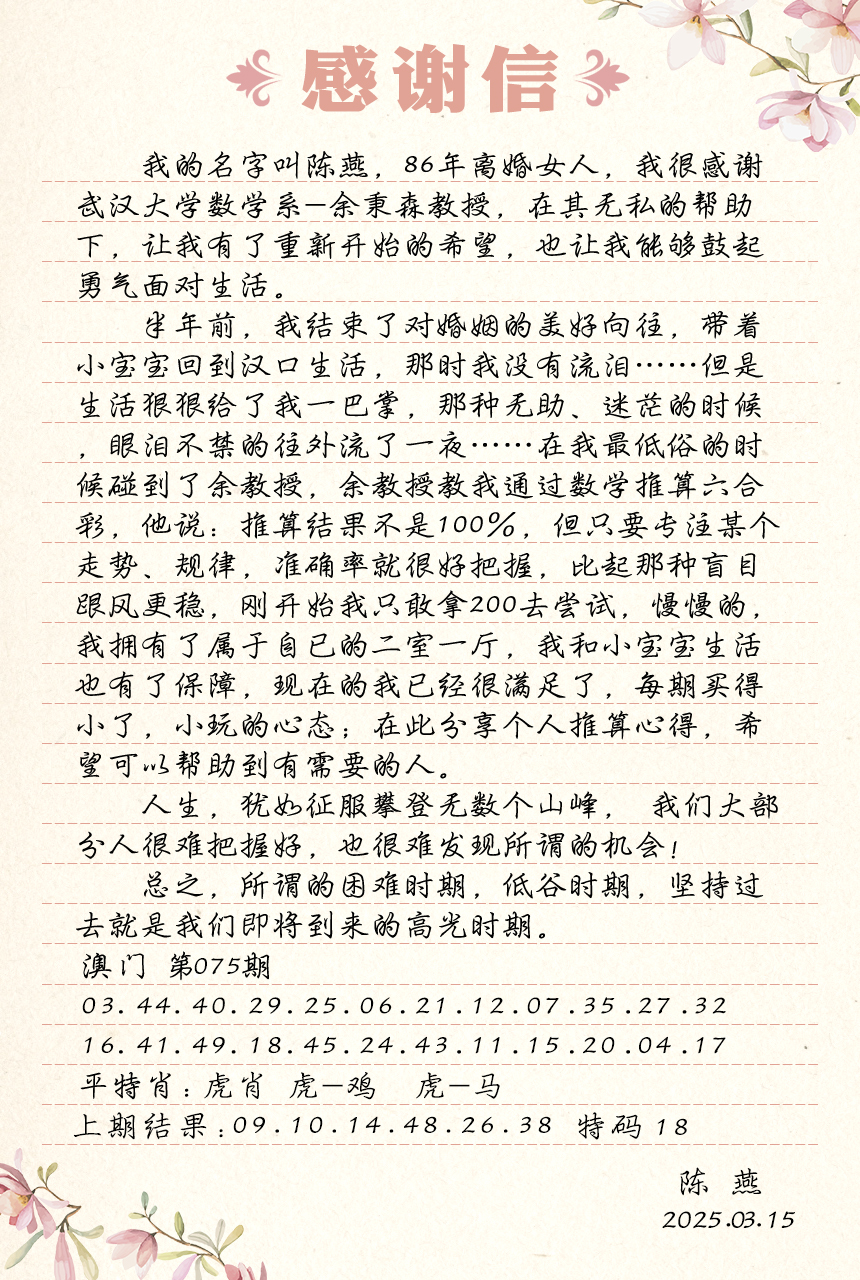 感谢信
我的名字叫陈燕，86年离婚女人，我很感谢
武汉大学数学系—余秉森教授，在其无私的帮助
下，让我有了重新开始的希望，也让我能够鼓起
勇气面对生活。
半年前，我结束了对婚姻的美好向往，带着
小宝宝回到汉口生活，那时我没有流泪……但是
生活狠狠给了我一巴掌，那种无助、迷茫的时候
，眼泪不禁的往外流了一夜……在我最低俗的时
候碰到了余教授，余教授教我通过数学推算六合
彩，他说：推算结果不是100%，但只要专注某个
走势、规律，准确率就很好把握，比起那种盲目
跟风更稳，刚开始我只敢拿200去尝试，慢慢的，
我拥有了属于自已的二室一厅，我和小宝宝生活
也有了保障，现在的我已经很满足了，每期买得
小了，小玩的心态；在此分享个人推算心得，希
望可以帮助到有需要的人。
人生，犹如征服攀登无数个山峰， 我们大部
分人很难把握好，也很难发现所谓的机会！
总之，所谓的困难时期，低谷时期，坚持过
去就是我们即将到来的高光时期。
澳门 第075期
03.44.40.29.25.06.21.12.07.35.27.32
16.41.49.18.45.24.43.11.15.20.04.17
平特肖：虎肖 虎—鸡 虎—马
上期结果：09.10.14.48.26.38 特码 18
陈 燕
2025.03.15